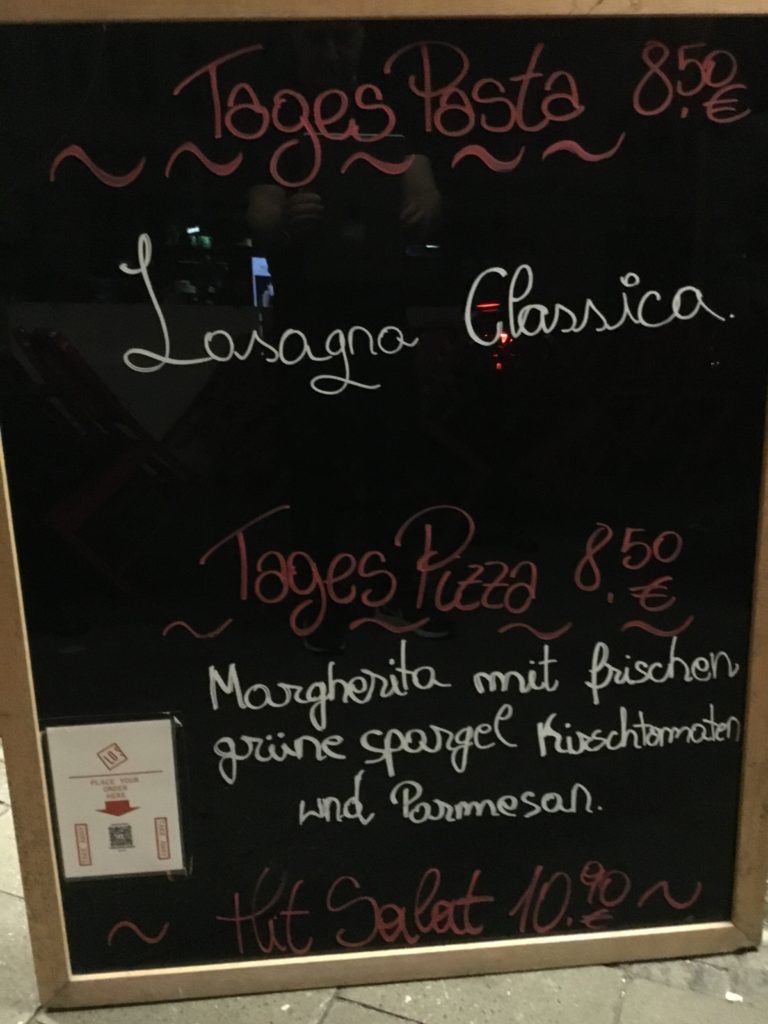 Tages Pasta 8.50 €
Lasagna Classica.
Tages Pizza 8.50 €
Margherita mit frischen
grüne spargel Kirschtomaten
und Parmesan.
PLACE YOUR
ORDER
HERE
Hit Salat 10.90 €